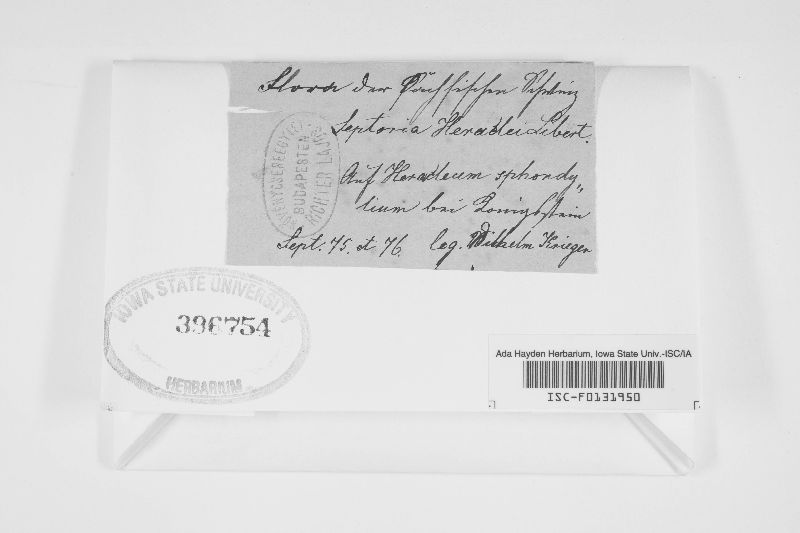 Flora der Sächsischen Schweiz
Septoria Heraclei Libert.
Auf Heracleum sphondy„
lium bei Königstein
Sept. 75. et 76. leg. Wilhelm Krieger
BUDAPESTEN
IOWA STATE UNIVERSITY
396754
HERBARIUM
Ada Hayden Herbarium, Iowa State Univ.-ISC/IA
ISC-F0131950